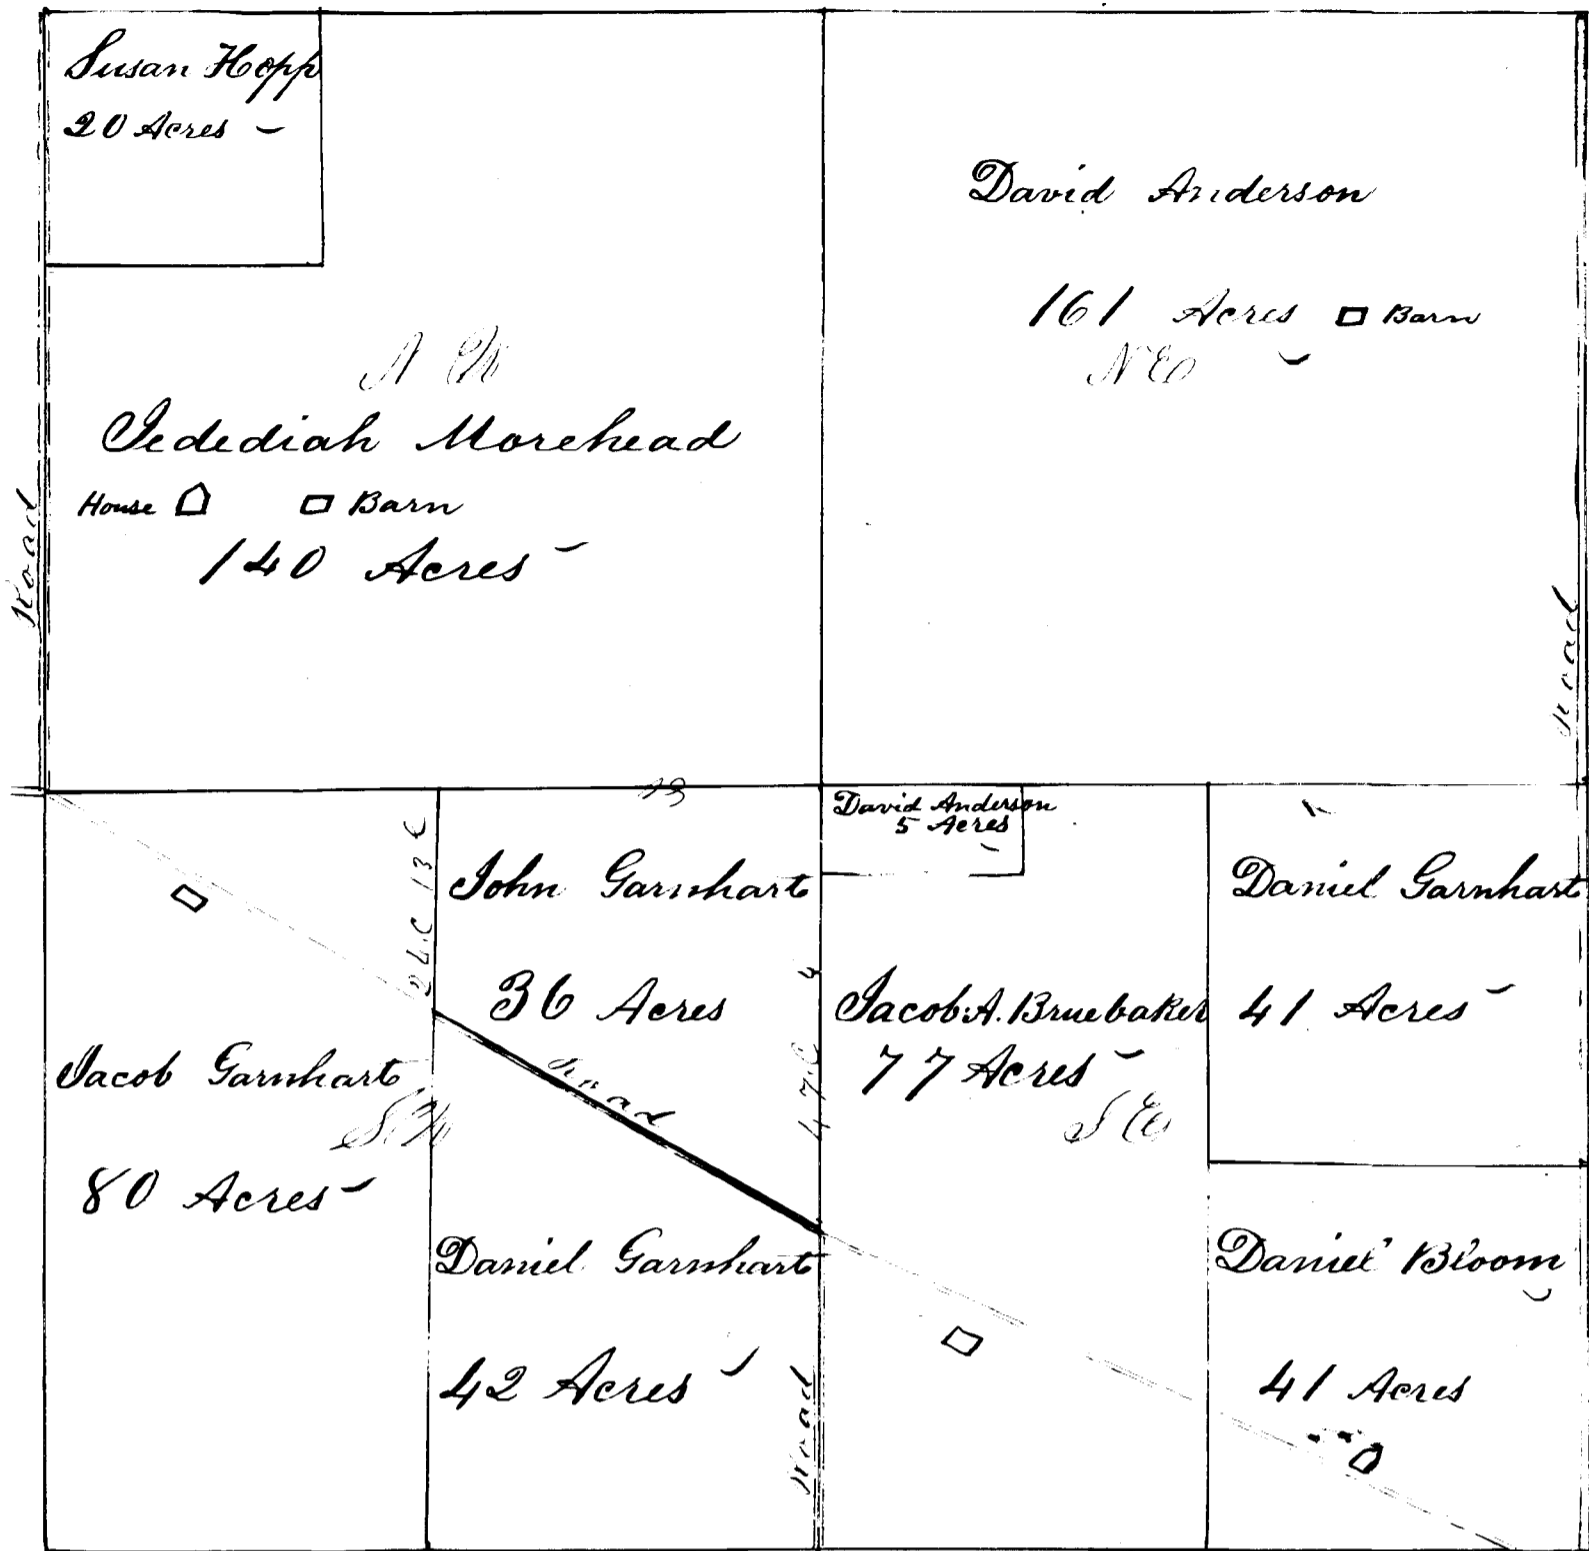 Susan Hopp
20 Acres –
David Anderson
161 Acres Barn
N E
N W
Jedediah Morehead
House Barn
140 Acres –
Road
Road
David Anderson
5 Acres
24 C 13 C
John Garnhart
36 Acres
Road
47 C 4
Jacob A. Bruebaker
77 Acres –
S E
Daniel Garnhart
41 Acres –
Jacob Garnhart
S W
80 Acres –
Daniel Garnhart
42 Acres
Road
Daniel Bloom
41 Acres